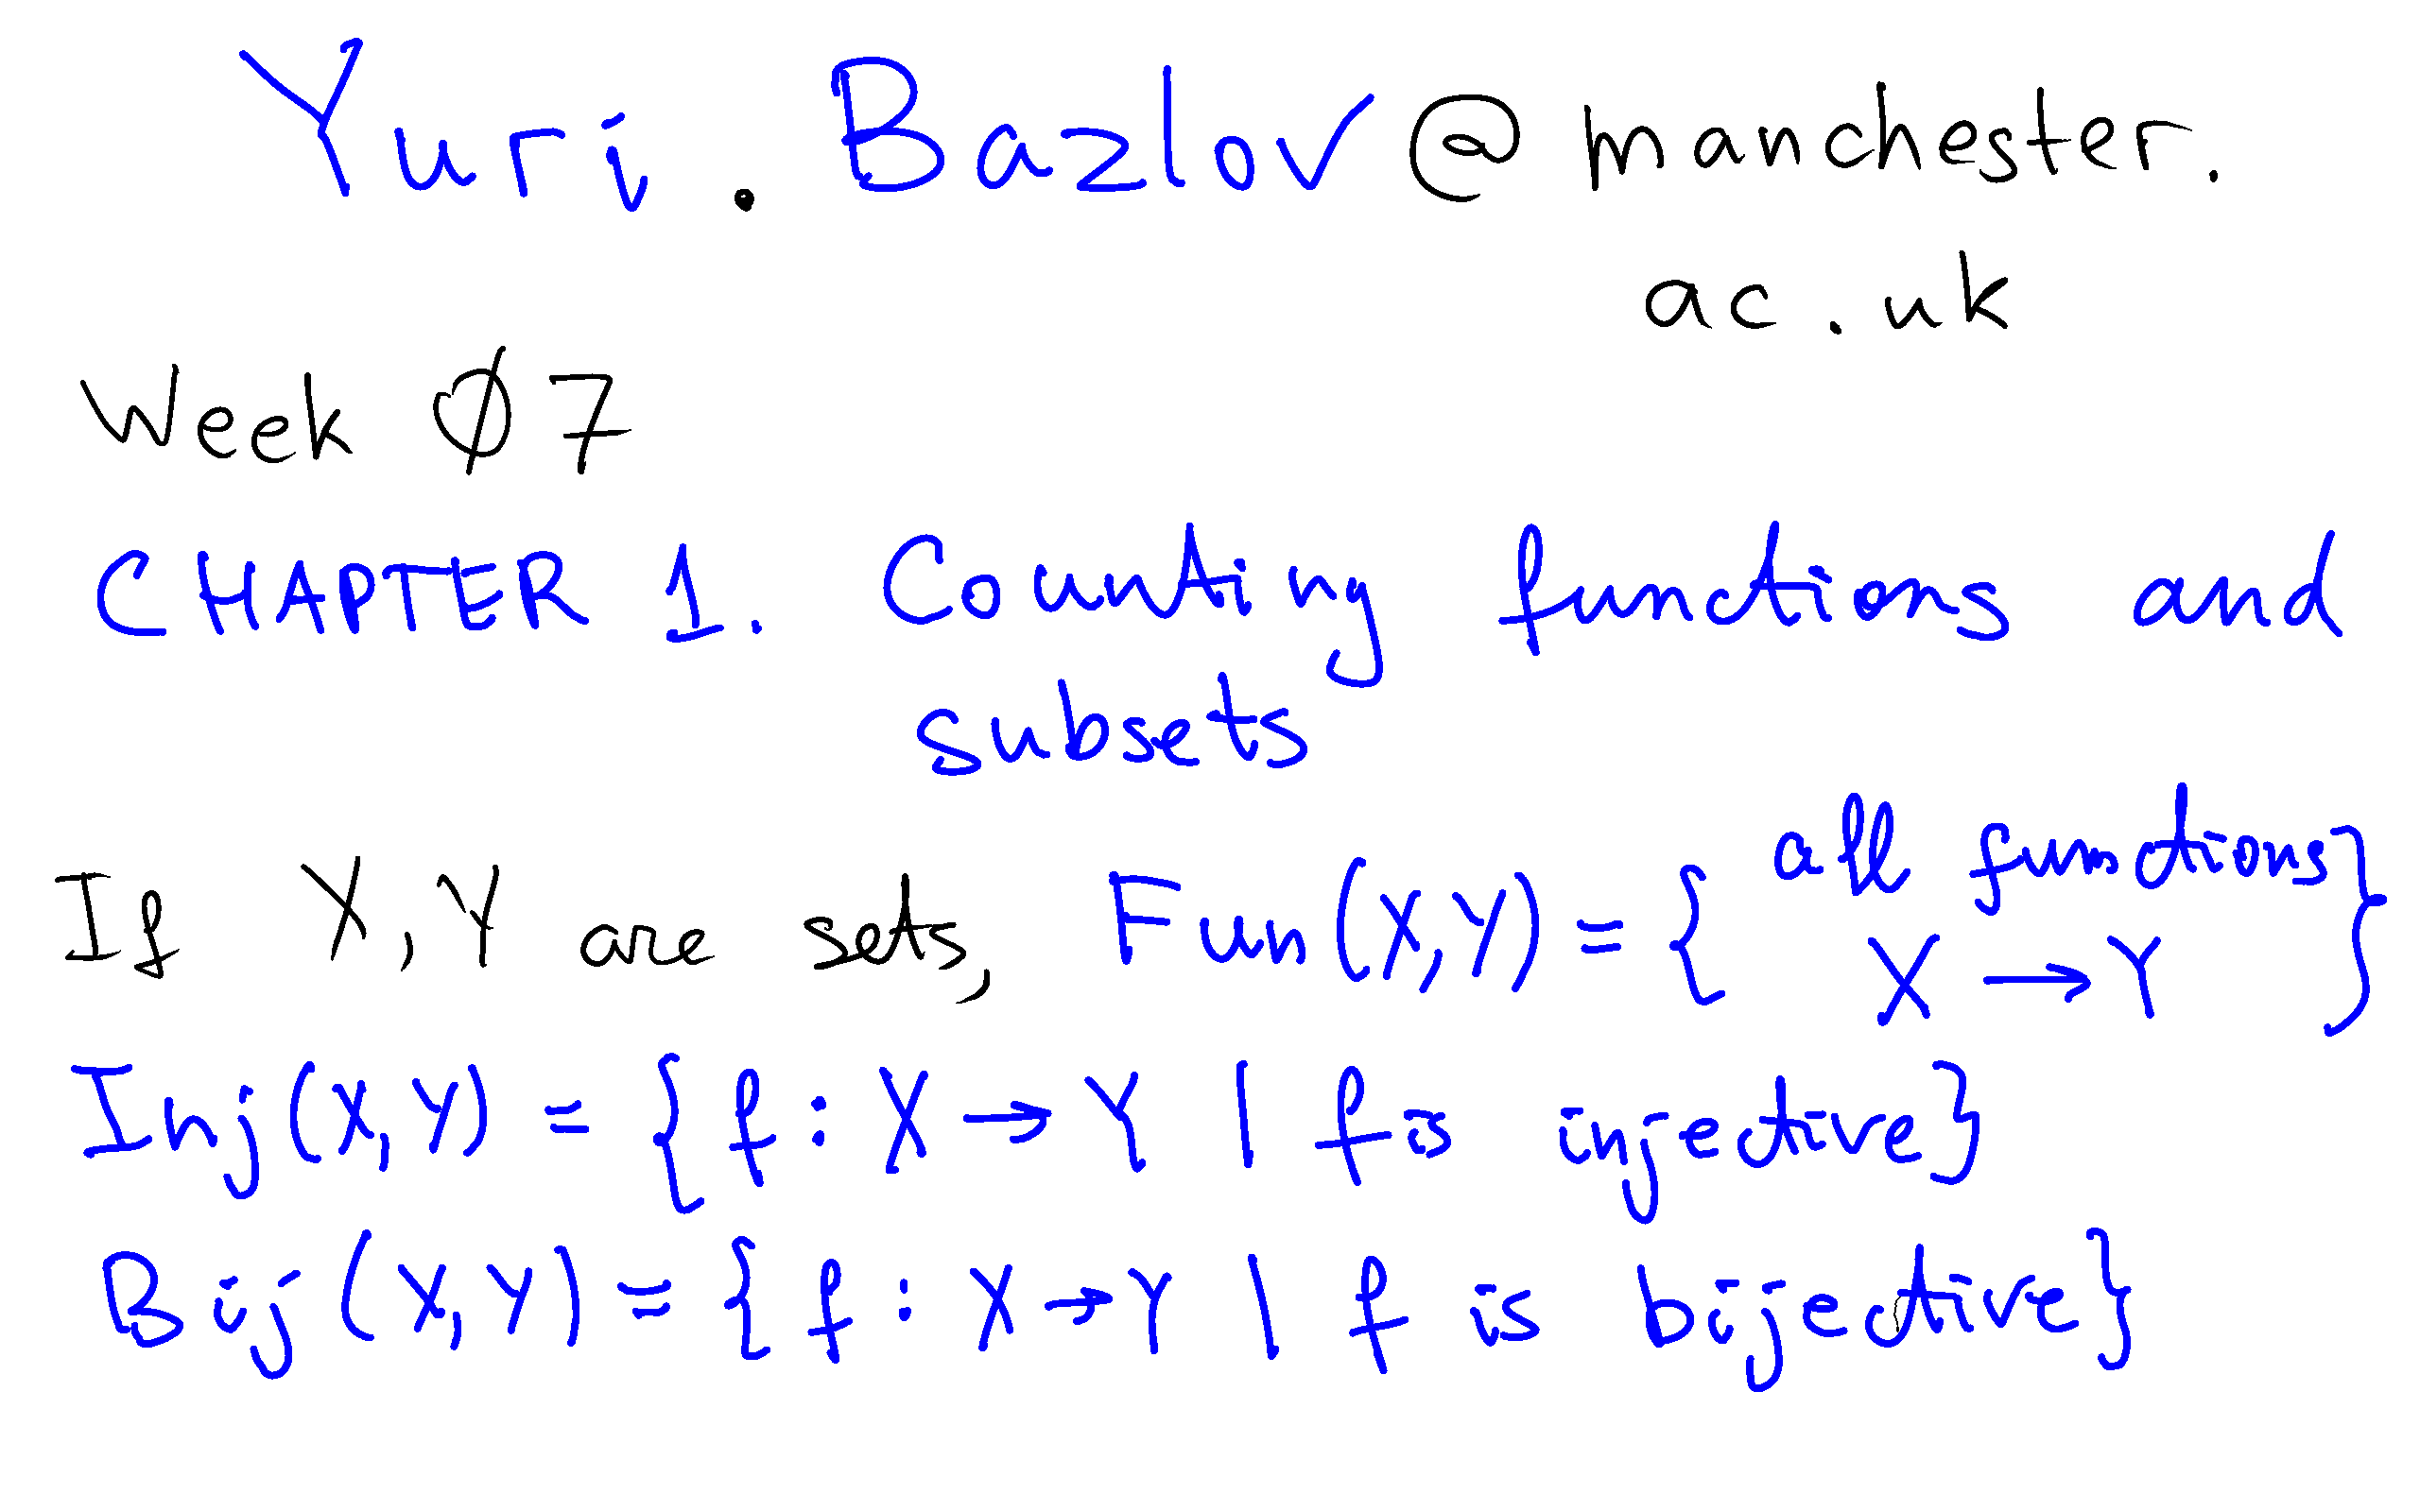 Yuri.Bazlov@manchester.
ac.uk
Week 07
CHAPTER 1. Counting functions and
subsets
If X, Y are sets, Fun(X,Y) = { all functions
X → Y }
Inj(X,Y) = {f : X → Y | f is injective}
Bij(X,Y) = {f : X → Y | f is bijective}